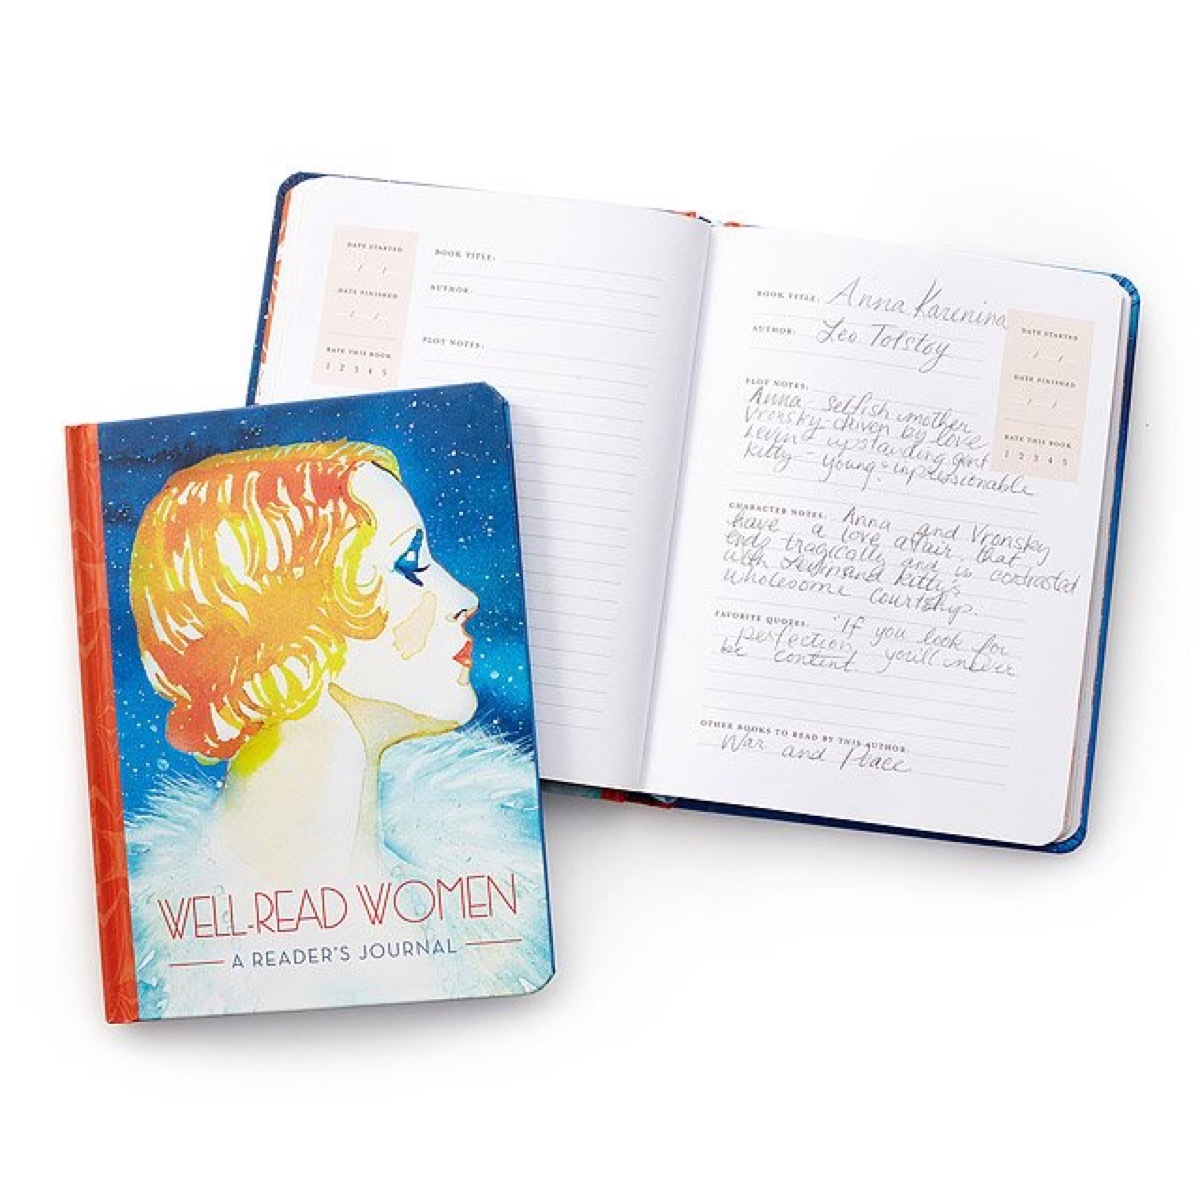 DATE STARTED
/ /
DATE FINISHED
/ /
RATE THIS BOOK
1 2 3 4 5
BOOK TITLE:
AUTHOR:
PLOT NOTES:
BOOK TITLE: Anna Karenina
AUTHOR: Leo Tolstoy
DATE STARTED
/ /
DATE FINISHED
/ /
RATE THIS BOOK
1 2 3 4 5
PLOT NOTES:
Anna - selfish mother
Vronsky driven by love
Levin upstanding gent
Kitty - young + impressionable
CHARACTER NOTES: Anna and Vronsky
have a love affair that
ends tragically and is contrasted
with Levin and Kitty's
wholesome courtship.
FAVORITE QUOTES: "If you look for
perfection, you'll never
be content.
OTHER BOOKS TO READ BY THIS AUTHOR:
War and Peace
WELL-READ WOMEN
A READER'S JOURNAL